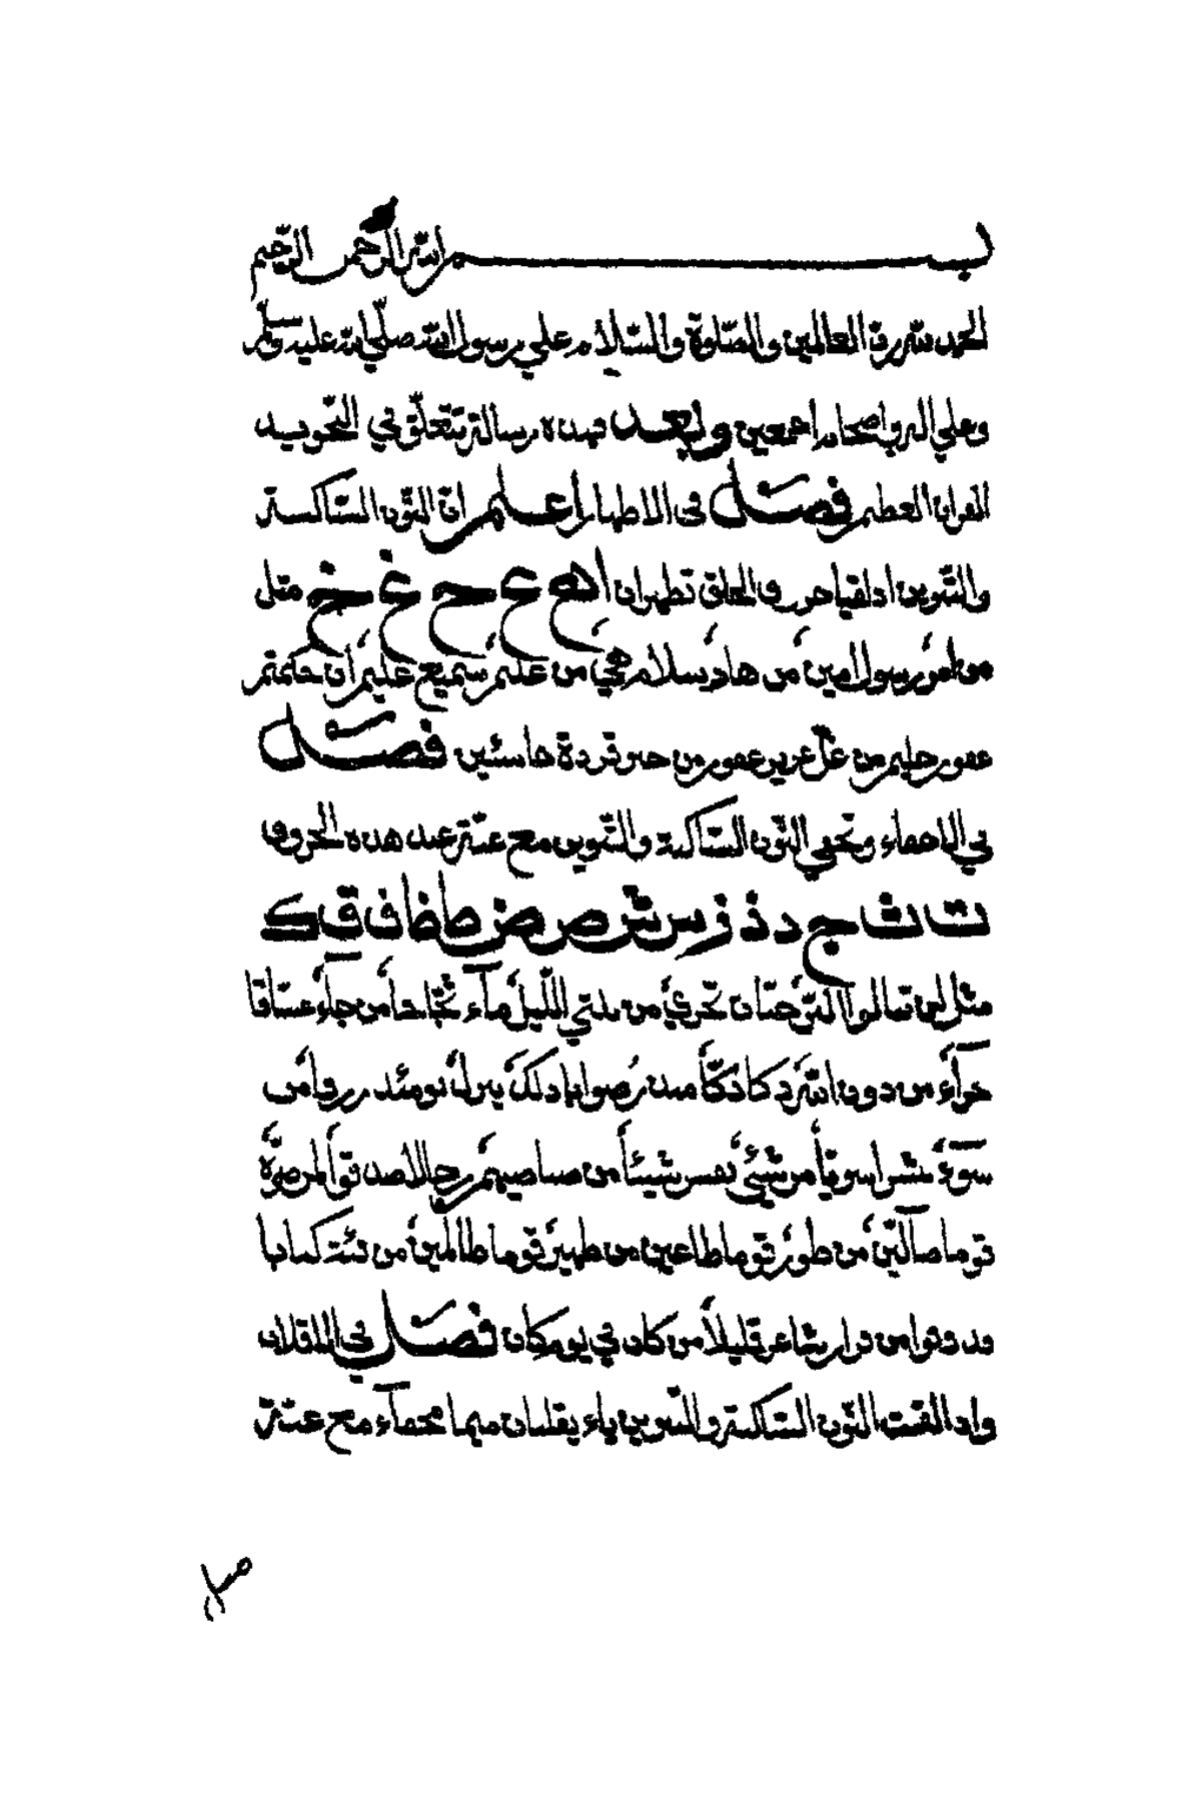 بسم الله الرحمن الرحيم
الحمد لله رب العالمين والصلوة والسّلام علي رسول الله صلّي الله عليه وسلّم
وعلي اله واصحابه اجمعين وبعد فهذه رسالة تتعلّق في التّجويد
القران العظيم فصل في الاظهار اعلم انّ النّون السّاكنة
والتّنوين اذا لقيا حروف الحلق تظهران ا ه ع ح غ خ مثل
من امن رسول امين من هاد سلام هي من علم سميع عليم ان حكمتم
غفور حليم من غلّ عزيز غفور من خير قردة خاسئين فصل
في الاخفاء وتخفي النّون السّاكنة والتّنوين مع غنّة عند هذه الحروف
ت ث ج د ذ ز س ش ص ض ط ظ ف ق ك
مثل لن تنالوا البرّ جنّات تجري من ثلثي اللّيل مآء ثجّاجا من جآء غسّاقا
جزآء من دون الله دكّا دكّا منذ
سوآء بشرا سويّا من شيئ نفس شيئا من صياصيهم رجالا صدقوا
قوما ضآلّين من طور قوما طاغين من ظهير قوما ظالمين من فئة
فذوقوا من قرار شاعر قليلا من كان في يوم كان فصل في الاقلاب
واذا القيت النّون السّاكنة والتّنوين باء يقلبان ميما مخفآء مع غنّة